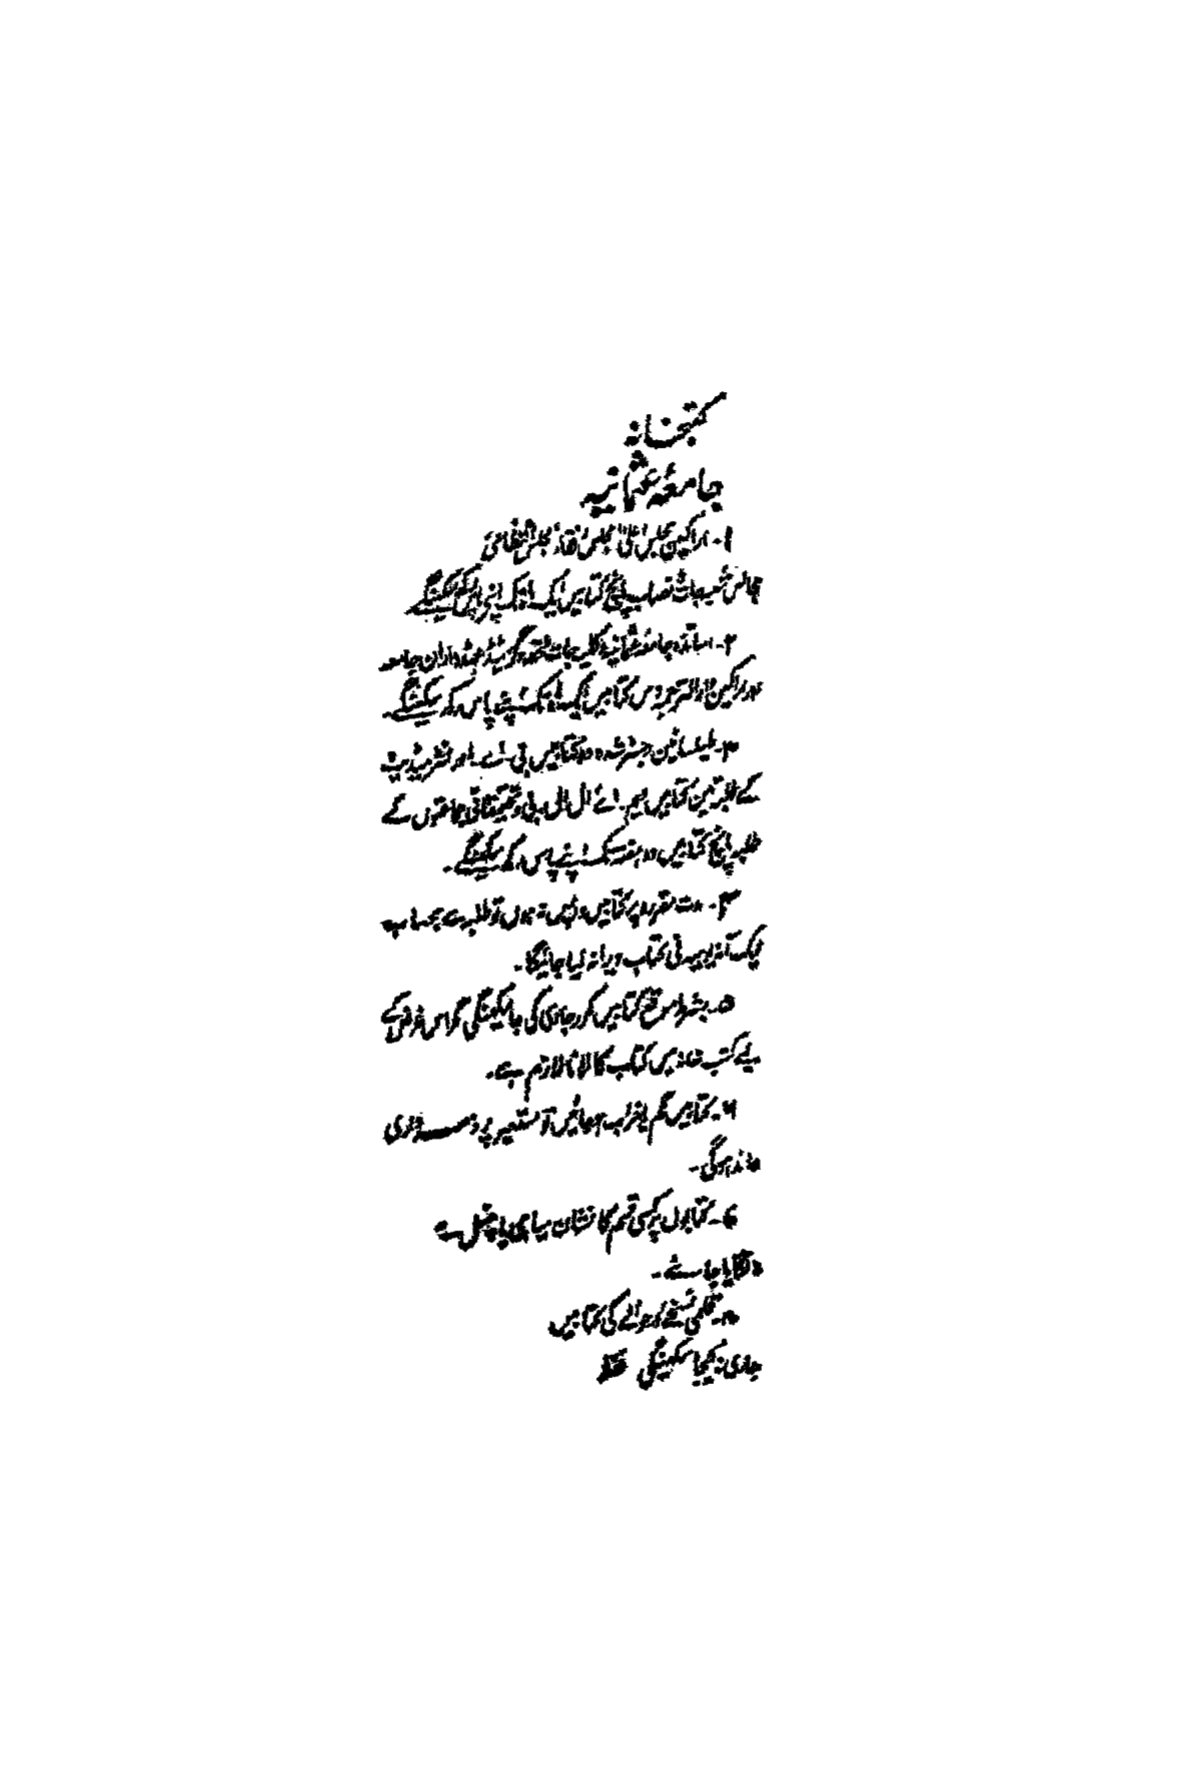 کتبخانہ
جامعۂ عثمانیہ
۱۔ اراکین مجلس اعلیٰ مجلس رفقاء مجلس انتظامی
مجالس شعبہ جات نصاب پانچ کتابیں ایک ماہ تک اپنے پاس رکھ سکینگے
۲۔ اساتذہ جامعۂ عثمانیہ و کلیہ جات عہدہ داران جامعہ
اور اراکین دارالترجمہ دس کتابیں ایک ماہ تک اپنے پاس رکھ سکینگے۔
۳۔ طیلسانین رجسٹر شدہ دو کتابیں بی۔ اے۔ اور انٹرمیڈیٹ
کے طلبہ تین کتابیں ایم۔ اے ال ال۔ بی و تحقیقاتی جماعتوں کے
طلبہ پانچ کتابیں دو ہفتہ تک اپنے پاس رکھ سکینگے۔
۴۔ مدت مقررہ پر کتابیں واپس نہ ہوں تو طلبہ سے بحساب
ایک آنہ یومیہ فی کتاب ہرجانہ لیا جائیگا۔
۵۔ بشرط موقع کتابیں مکرر جاری کی جا سکینگی مگر اس غرض کے
لیے کتب خانہ میں کتاب کا لانا لازم ہے۔
۶۔ کتابیں گم یا خراب ہو جائیں تو مستعیر پر ذمہ داری
عائد ہوگی۔
۷۔ کتابوں پر کسی قسم کا نشان سیاہی یا پنسل سے
نہ لگایا جائے۔
۸۔ قلمی نسخے اور حوالے کی کتابیں
جاری نہ کیجا سکینگی فقط